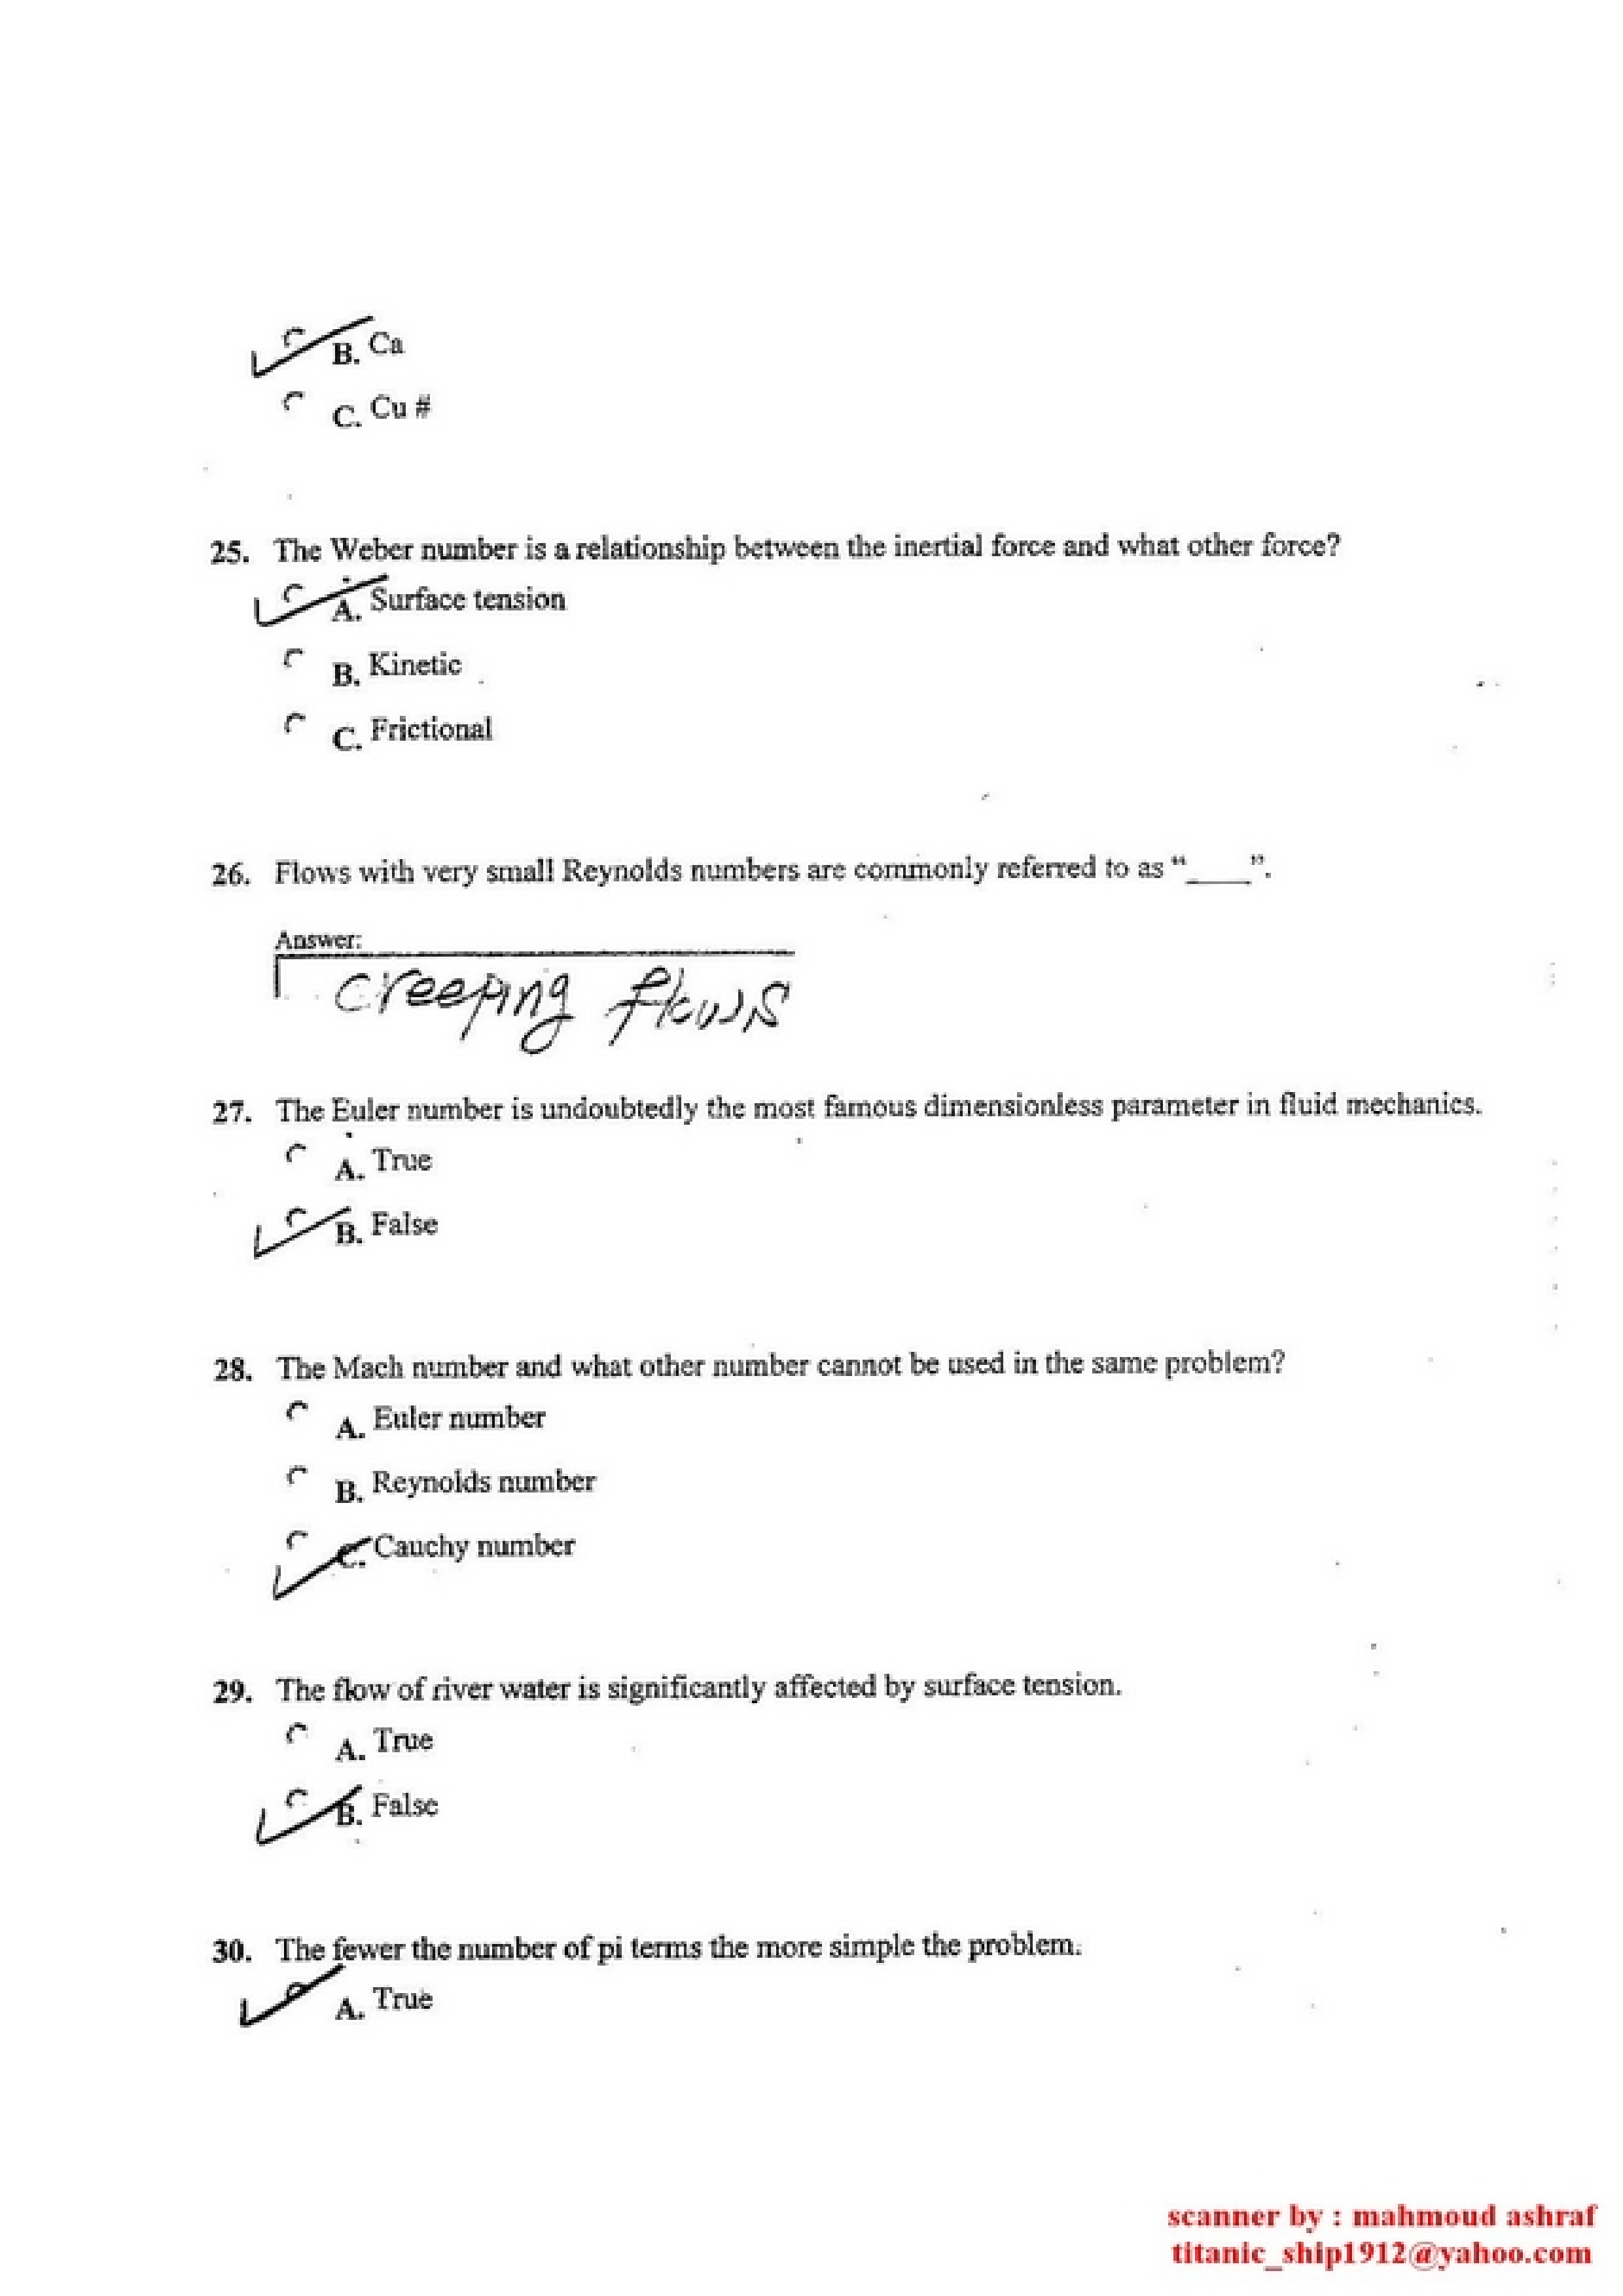 B. Ca
C. Cu #
25. The Weber number is a relationship between the inertial force and what other force?
A. Surface tension
B. Kinetic
C. Frictional
26. Flows with very small Reynolds numbers are commonly referred to as “____”.
Answer:
creeping flows
27. The Euler number is undoubtedly the most famous dimensionless parameter in fluid mechanics.
A. True
B. False
28. The Mach number and what other number cannot be used in the same problem?
A. Euler number
B. Reynolds number
C. Cauchy number
29. The flow of river water is significantly affected by surface tension.
A. True
B. False
30. The fewer the number of pi terms the more simple the problem.
A. True
scanner by : mahmoud ashraf
titanic_ship1912@yahoo.com